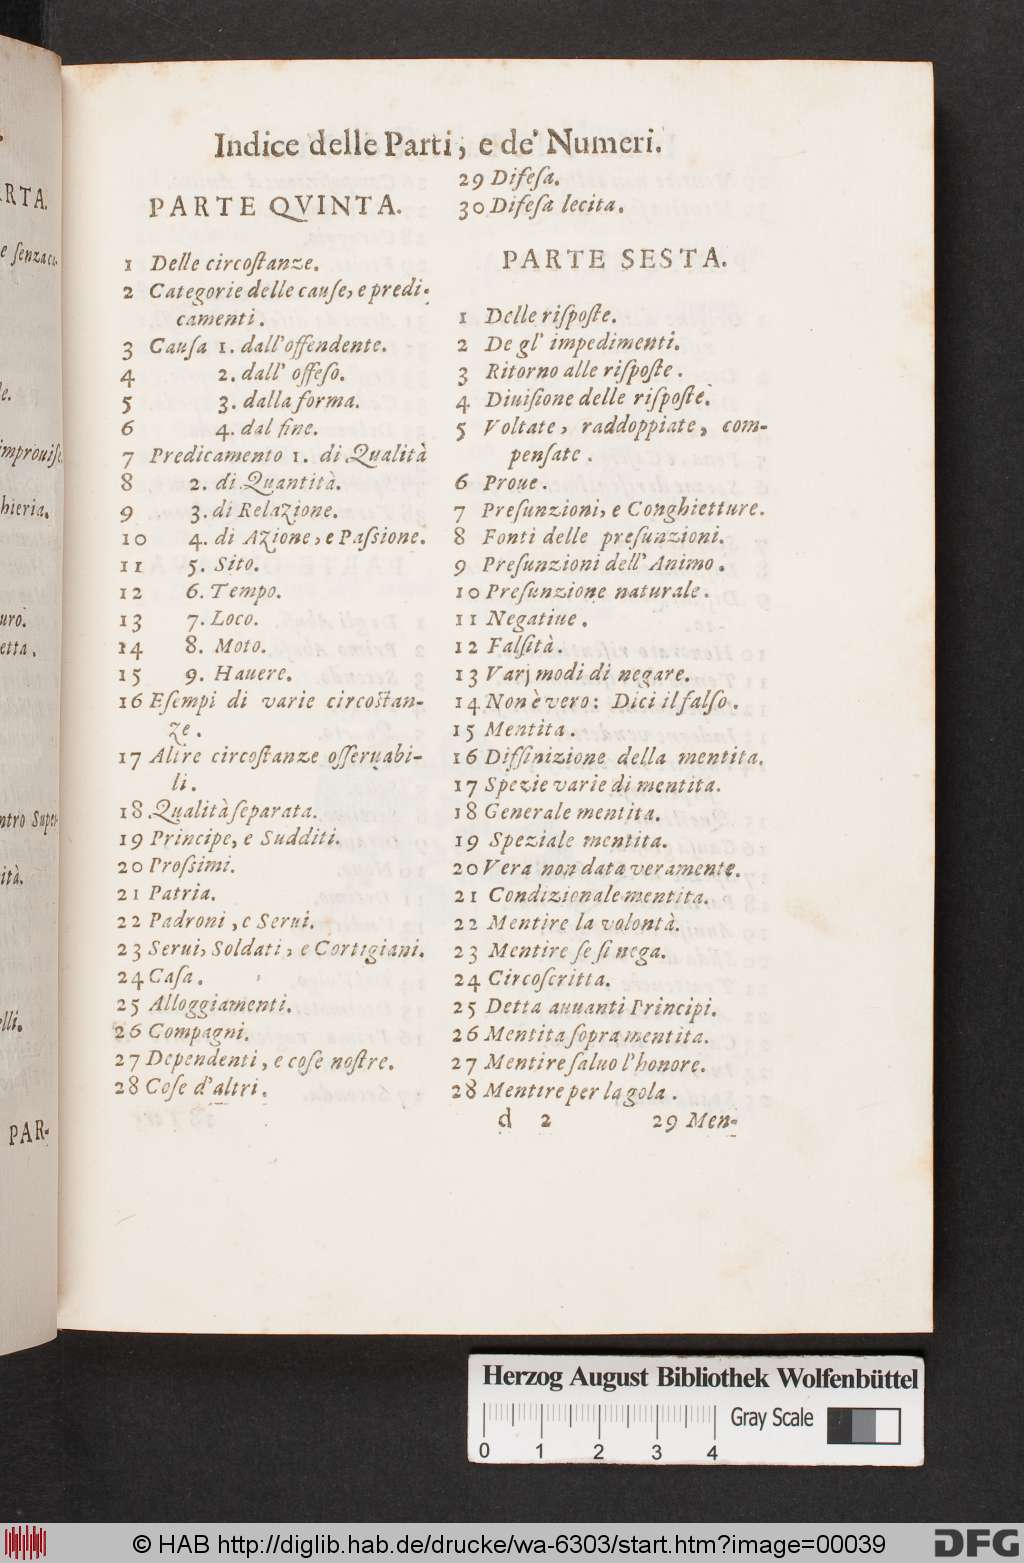 Indice delle Parti, e de' Numeri.
PARTE QVINTA.
1 Delle circoſtanze.
2 Categorie delle cauſe, e predi-
camenti.
3 Cauſa 1. dall'offendente.
4 2. dall' offeſo.
5 3. dalla forma.
6 4. dal fine.
7 Predicamento 1. di Qualità
8 2. di Quantità.
9 3. di Relazione.
10 4. di Azione, e Paſsione.
11 5. Sito.
12 6. Tempo.
13 7. Loco.
14 8. Moto.
15 9. Hauere.
16 Eſempi di varie circoſtan-
ze.
17 Altre circoſtanze oſſeruabi-
li.
18 Qualità ſeparata.
19 Principe, e Sudditi.
20 Proſsimi.
21 Patria.
22 Padroni, e Serui.
23 Serui, Soldati, e Cortigiani.
24 Caſa.
25 Alloggiamenti.
26 Compagni.
27 Dependenti, e coſe noſtre.
28 Coſe d'altri.
29 Difeſa.
30 Difeſa lecita.
PARTE SESTA.
1 Delle riſpoſte.
2 De gl' impedimenti.
3 Ritorno alle riſpoſte.
4 Diuiſione delle riſpoſte.
5 Voltate, raddoppiate, com-
penſate.
6 Proue.
7 Preſunzioni, e Conghietture.
8 Fonti delle preſunzioni.
9 Preſunzioni dell' Animo.
10 Preſunzione naturale.
11 Negatiue.
12 Falſità.
13 Varj modi di negare.
14 Non è vero: Dici il falſo.
15 Mentita.
16 Diffinizione della mentita.
17 Spezie varie di mentita.
18 Generale mentita.
19 Speziale mentita.
20 Vera non data veramente.
21 Condizionale mentita.
22 Mentire la volontà.
23 Mentire ſe ſi nega.
24 Circoſcritta.
25 Detta auuanti Principi.
26 Mentita ſopra mentita.
27 Mentire ſaluo l'honore.
28 Mentire per la gola.
d 2 29 Men-
RTA.
e ſenza ca-
le.
improuiſ
hieria.
uro.
etta.
ntro Supe
ità.
elli.
PAR-
Herzog August Bibliothek Wolfenbüttel
Gray Scale
0 1 2 3 4
© HAB http://diglib.hab.de/drucke/wa-6303/start.htm?image=00039
DFG